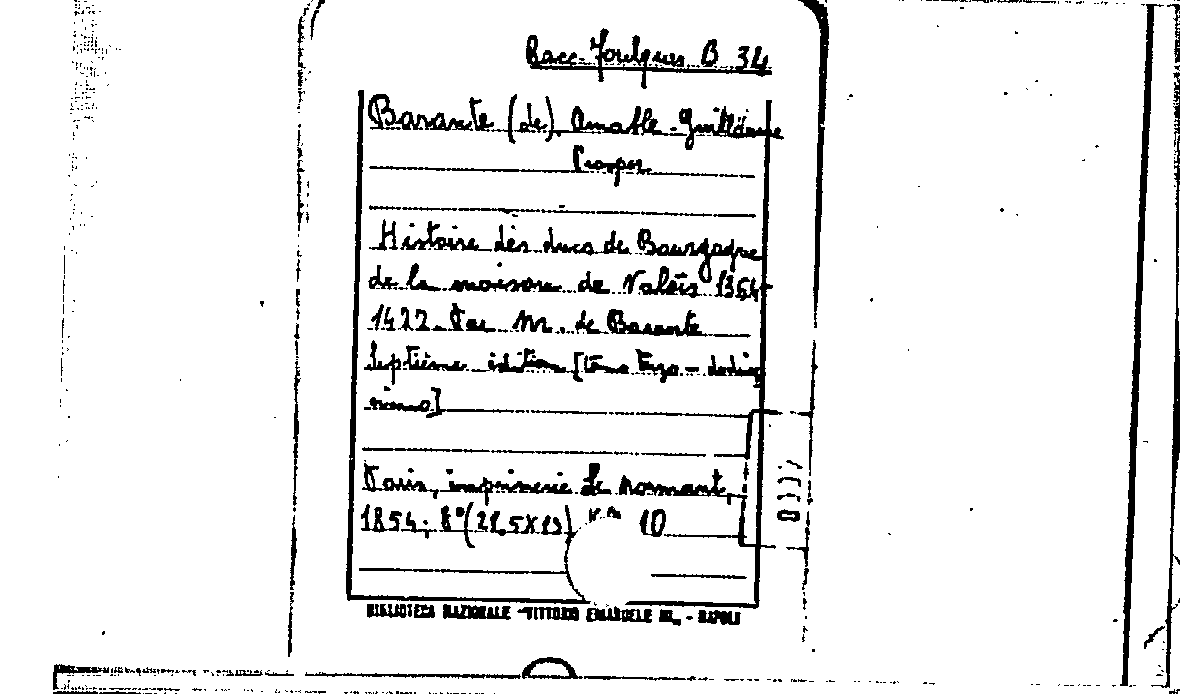 Race. Foulques B 34
Barante (de). Amable-Guillaume
Prosper.
Histoire des ducs de Bourgogne
de la maison de Valois 1364-
1422. Par M. de Barante
Septième édition [tomo terzo - dodice
simo]
Paris, imprimerie Le Normant,
1854; 8° (21,5x13) 10
BIBLIOTECA NAZIONALE "VITTORIO EMANUELE III" - NAPOLI